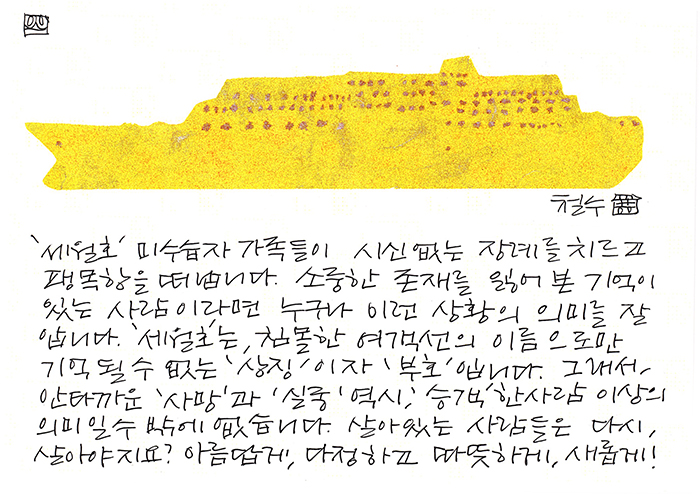 철수
'세월호' 미수습자 가족들이 시신 없는 장례를 치르고
팽목항을 떠납니다. 소중한 존재를 잃어 본 기억이
있는 사람이라면 누구나 이런 상황의 의미를 잘
압니다. '세월호'는, 침몰한 여객선의 이름으로만
기억 될 수 없는 '상징'이자 '부호'입니다. 그래서,
안타까운 '사망'과 '실종' 역시, '승객' 한사람 이상의
의미일 수 밖에 없습니다. 살아있는 사람들은 다시,
살아야지요? 아름답게, 다정하고 따뜻하게, 새롭게!